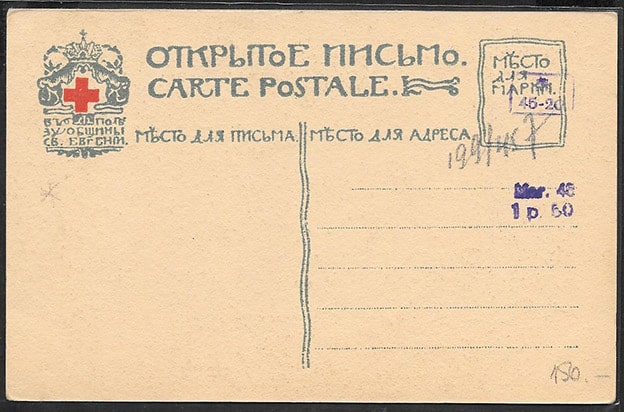 ОТКРЫТОЕ ПИСЬМО.
CARTE POSTALE.
МѢСТО
ДЛЯ
МАРКИ.
46-20
ВЪ ПОЛЬ
ЗУ ОБЩИНЫ
СВ. ЕВГЕНІИ.
МѢСТО ДЛЯ ПИСЬМА.
МѢСТО ДЛЯ АДРЕСА.
Маг. 46
1 р. 50
150.—